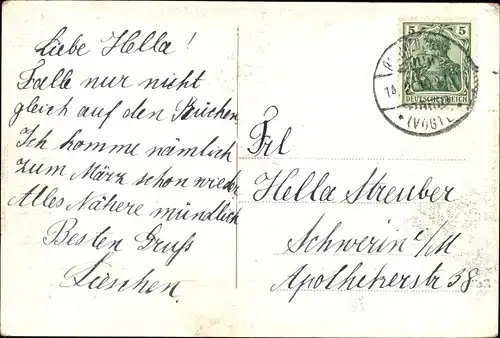 Liebe Hella!
Falle nur nicht
gleich auf den Rücken
Ich komme nämlich
zum März schon wieder
Alles Nähere mündlich
Besten Gruß
Lieschen.
5 5
DEUTSCHES REICH
14.
* (VOGTL
Frl
Hella Streuber
Schwerin i/M
Apothekerstr 38